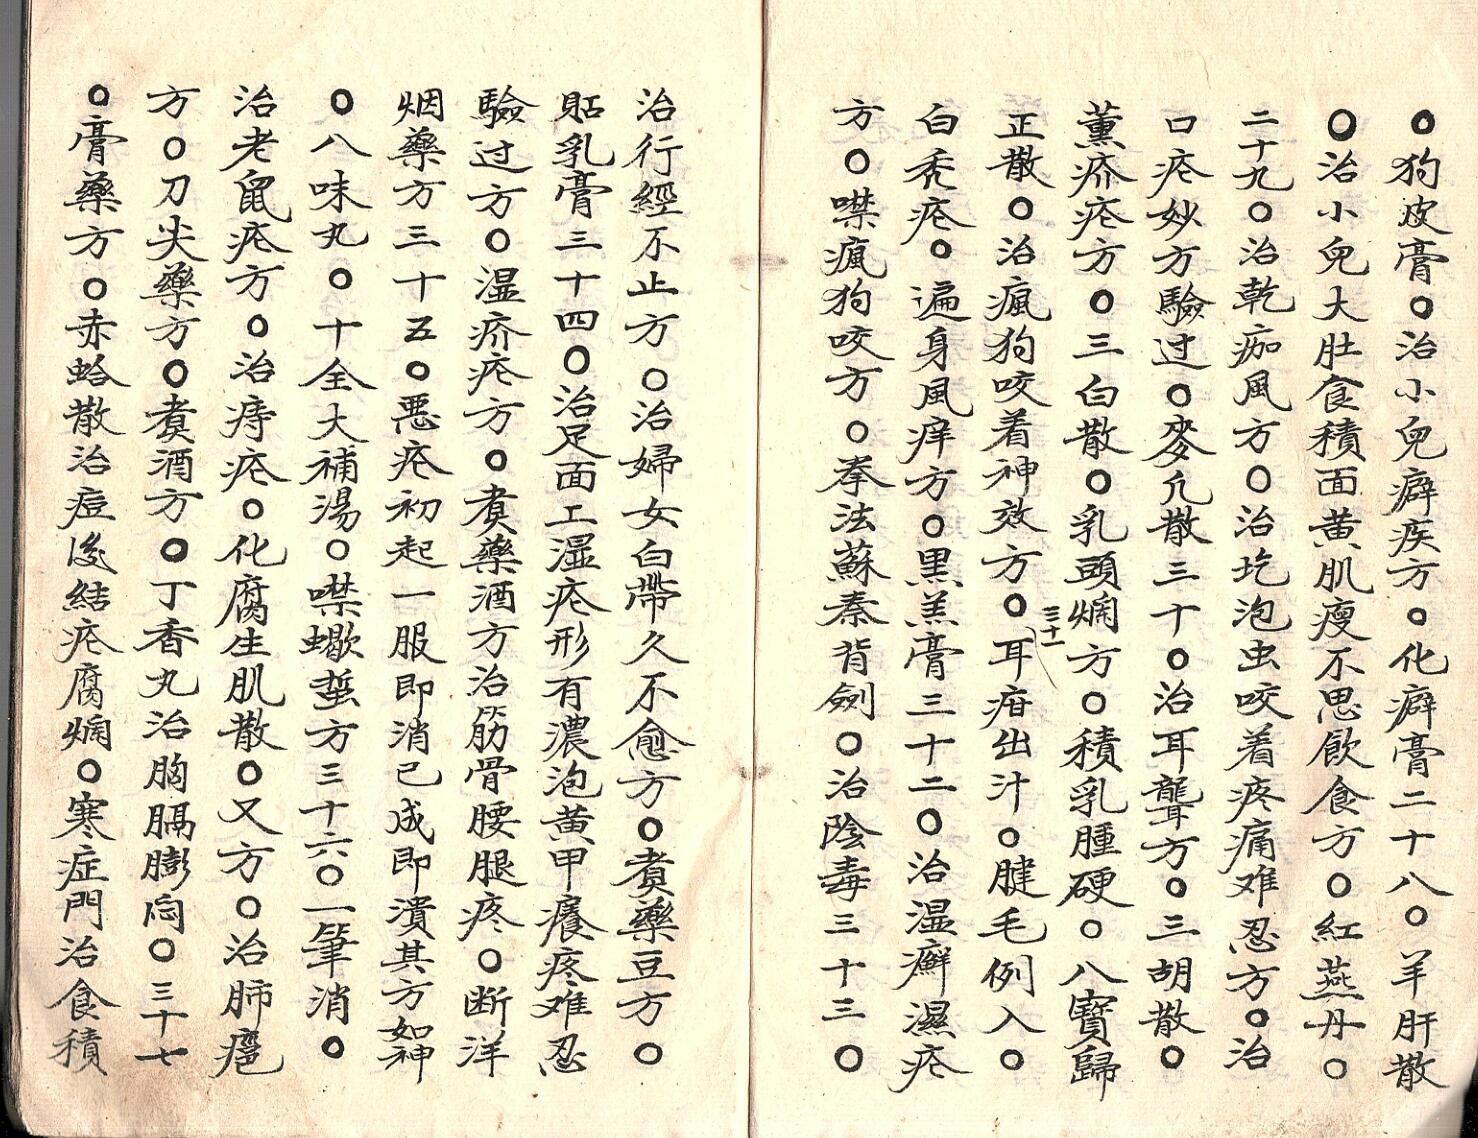 ○狗皮膏○治小兒癖疾方○化癖膏二十八○羊肝散
○治小兒大肚食積面黃肌瘦不思飲食方○紅燕丹○
二十九○治乾痂風方○治圪泡虫咬着疼痛难忍方○治
口疮妙方驗过○麥凢散三十○治耳聾方○三胡散○
薰疥疮方○三白散○乳頭爛方○積乳腫硬○八寶歸
正散○治瘋狗咬着神效方○三十一耳疳出汁○腱毛例入○
白秃疮○遍身風痒方○黑羔膏三十二○治湿癬濕疮
方○噤瘋狗咬方○拳法蘇秦背劍○治陰毒三十三○
治行經不止方○治婦女白帶久不愈方○煑藥豆方○
貼乳膏三十四○治足面上湿疮形有濃泡黄甲癢疼难忍
驗过方○湿疥疮方○煑藥酒方治筋骨腰腿疼○断洋
烟藥方三十五○悪疮初起一服即消已成即潰其方如神
○八味丸○十全大補湯○噤蠍蜇方三十六○一筆消○
治老鼠疮方○治痔疮○化腐生肌散○又方○治肺癰
方○刀尖藥方○煑酒方○丁香丸治胸膈膨悶○三十七
○膏藥方○赤蛤散治痘後結疮腐爛○寒症門治食積